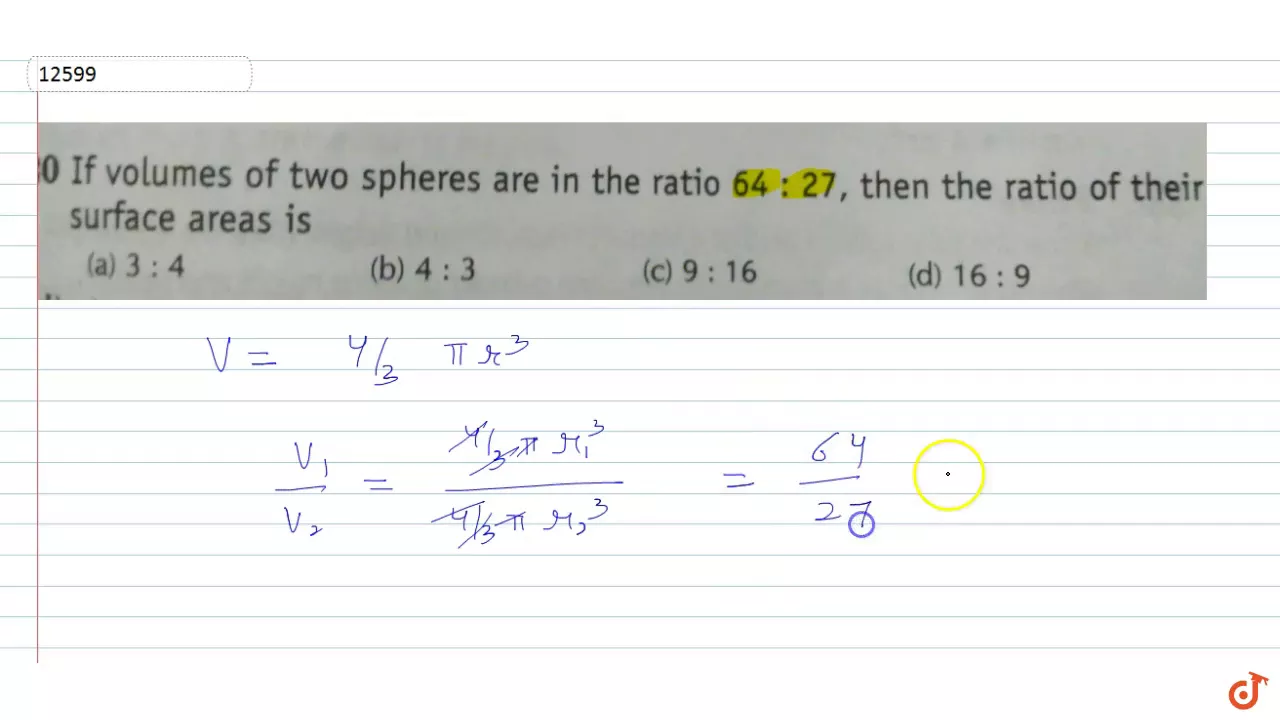 12599
0 If volumes of two spheres are in the ratio 64 : 27, then the ratio of their
surface areas is
(a) 3 : 4 (b) 4 : 3 (c) 9 : 16 (d) 16 : 9
V = 4/3 π r³
V₁/V₂ = 4/3 π r₁³ / 4/3 π r₂³ = 64/27